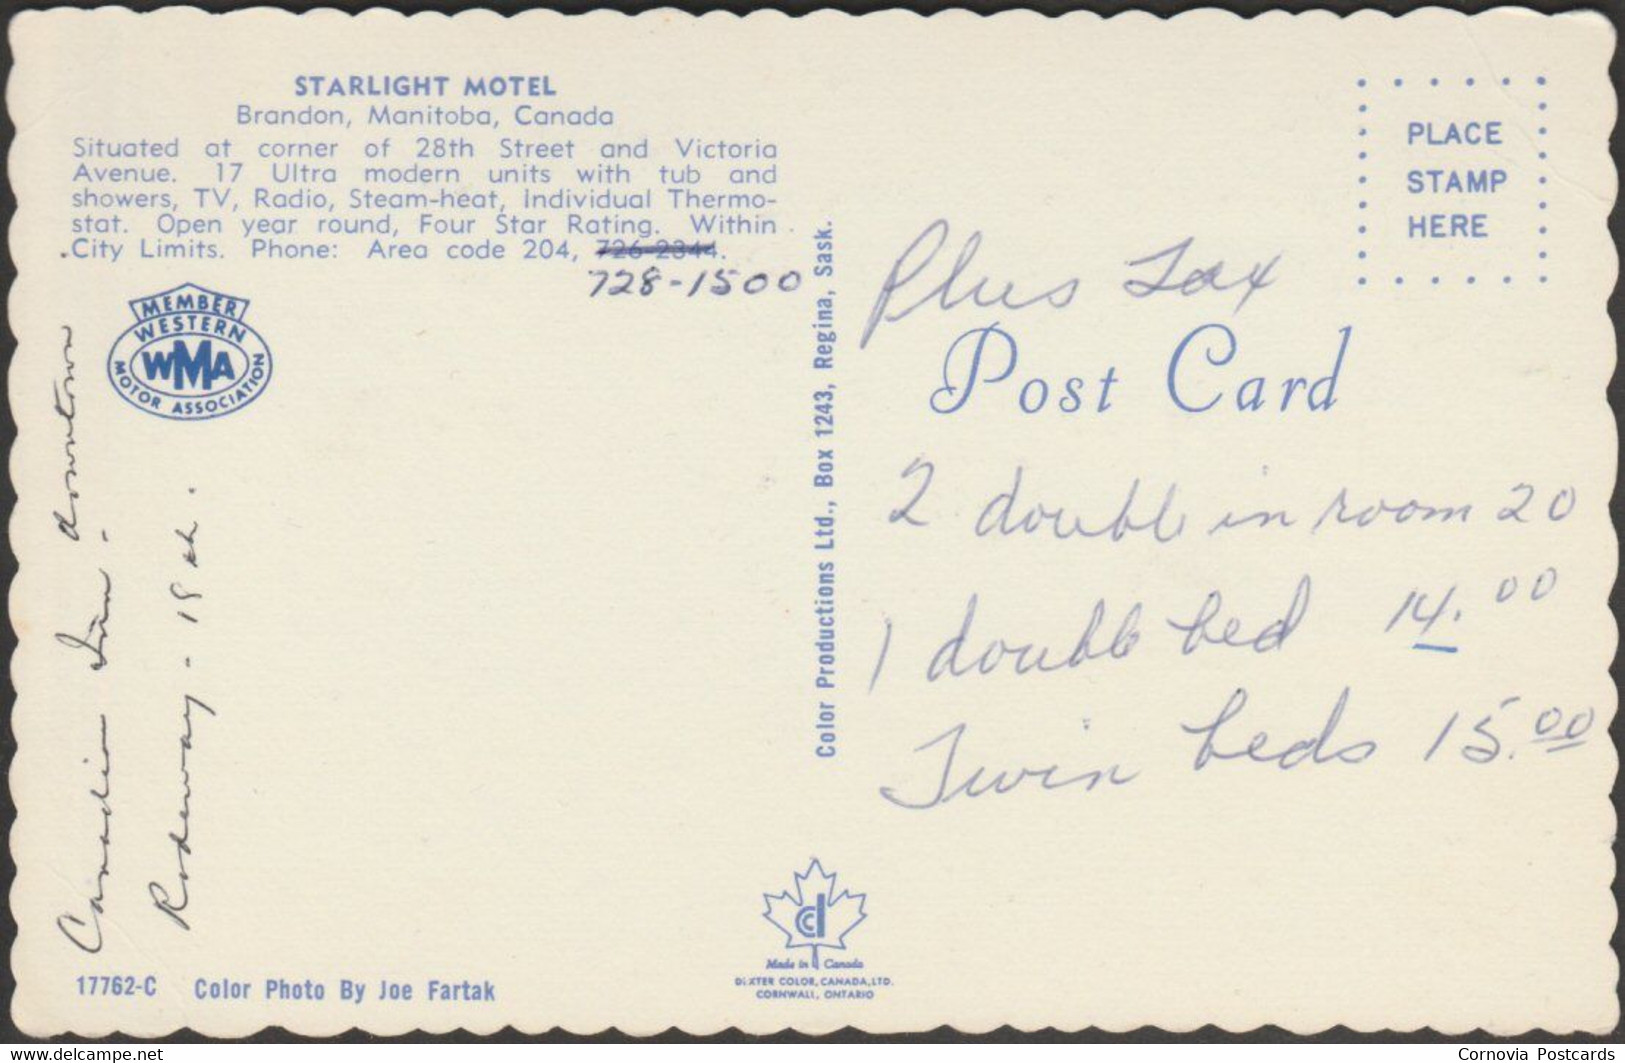 STARLIGHT MOTEL
Brandon, Manitoba, Canada
Situated at corner of 28th Street and Victoria
Avenue. 17 Ultra modern units with tub and
showers, TV, Radio, Steam-heat, Individual Thermo-
stat. Open year round, Four Star Rating. Within
City Limits. Phone: Area code 204, 726-2344.
728-1500
MEMBER
WESTERN
WMA
MOTOR ASSOCIATION
Canadian Inn. downtown
Rodeway - 18th.
17762-C Color Photo By Joe Fartak
Color Productions Ltd., Box 1243, Regina, Sask.
Made in Canada
DEXTER COLOR, CANADA, LTD.
CORNWALL, ONTARIO
PLACE
STAMP
HERE
Plus Tax
Post Card
2 double in room 20
1 double bed 14.00
Twin beds 15.00
www.delcampe.net
Cornovia Postcards